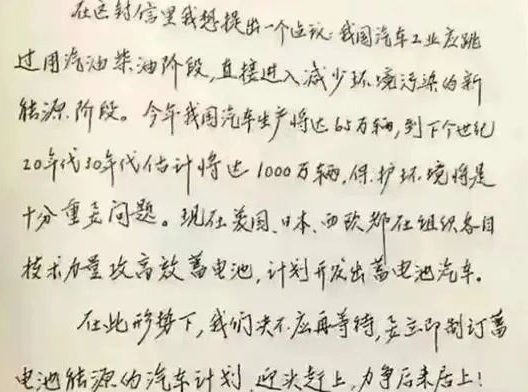 在这封信里我想提出一个建议:我国汽车工业应跳
过用汽油柴油阶段,直接进入减少环境污染的新
能源阶段。今年我国汽车生产将达65万辆,到下个世纪
20年代30年代估计将达1000万辆,保护环境将是
十分重要问题。现在美国、日本、西欧都在组织各自
技术力量攻高效蓄电池,计划开发出蓄电池汽车。
在此形势下,我们决不应再等待,要立即制订蓄
电池能源的汽车计划,迎头赶上,力争后来居上!